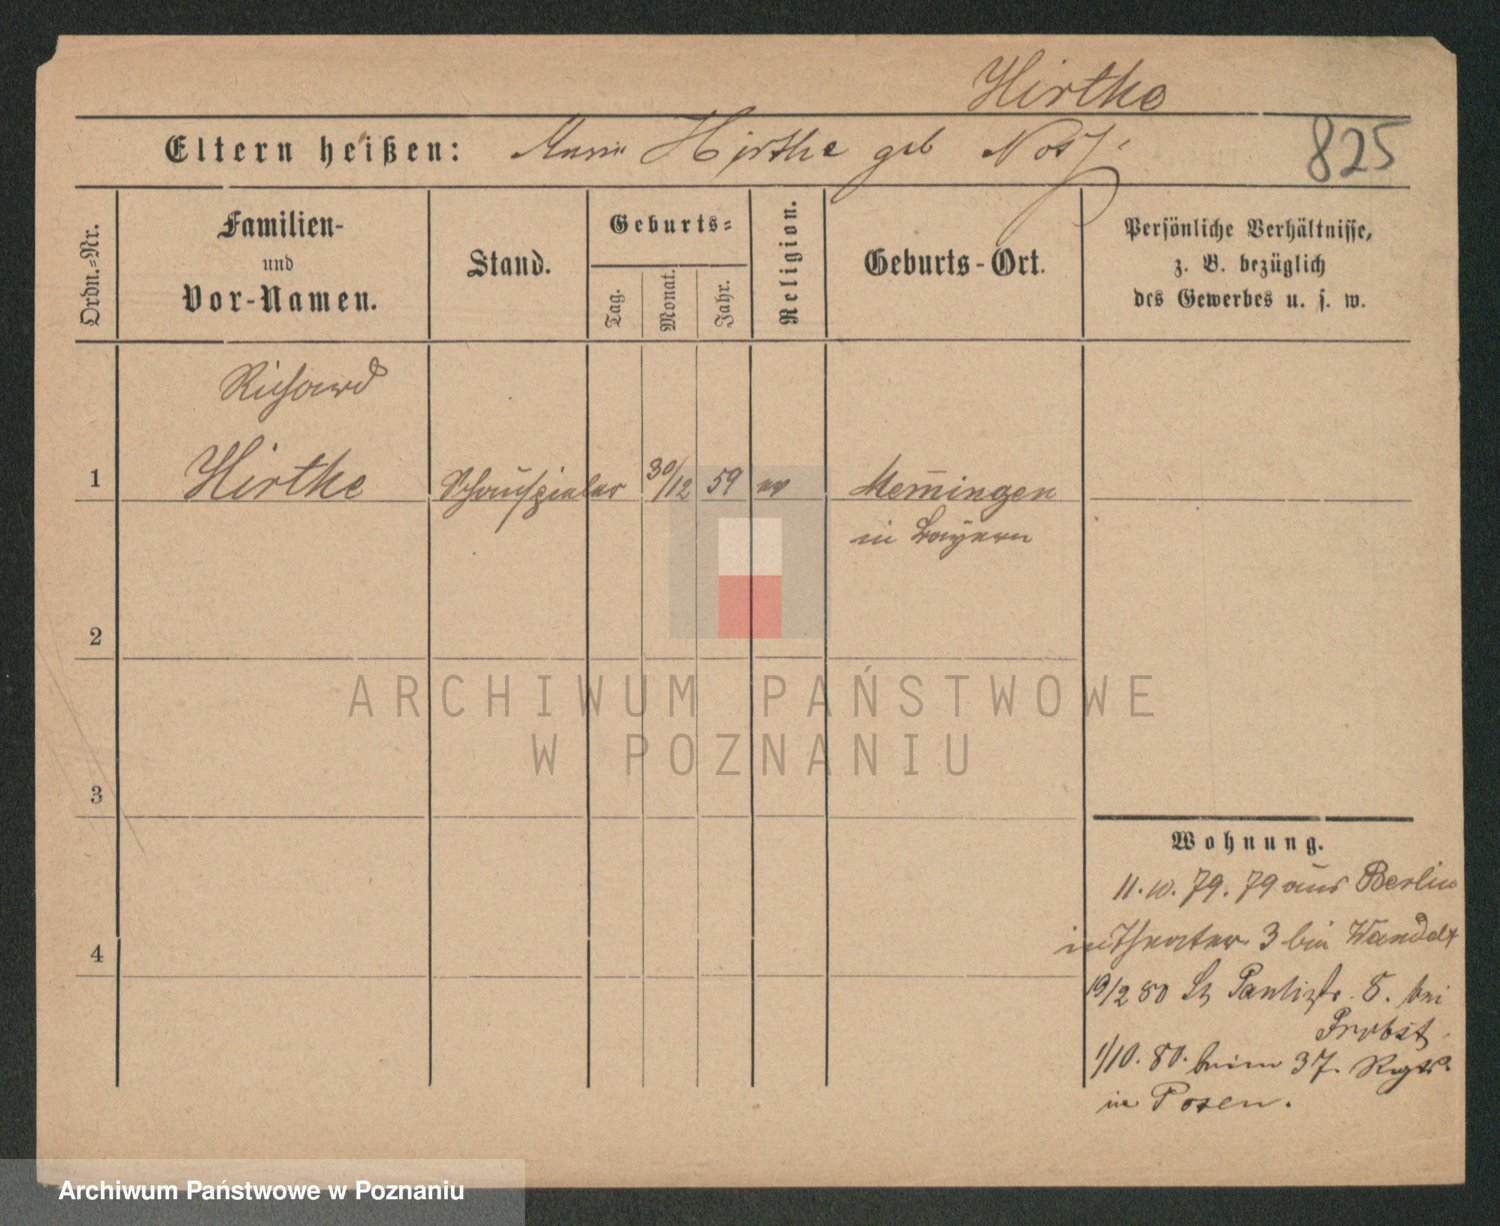 Hirthe
Eltern heißen: Hirthe geb
825
Ordn.-Nr.
Familien-
und
Vor-Namen.
Stand.
Geburts-
Tag.
Monat.
Jahr.
Religion.
Geburts-Ort.
Persönliche Verhältnisse,
z. B. bezüglich
des Gewerbes u. s. w.
Richard
1 Hirthe Schauspieler 30/12 59 ev Memingen
in Bayern
2
3
4
Wohnung.
79 aus Berlin
Theater 3 bei Wandelt
19/2 80 St Paulistr. 8. bei
Probst
1/10. 80. beim 37. Rgt
in Posen.
ARCHIWUM PAŃSTWOWE
W POZNANIU
Archiwum Państwowe w Poznaniu